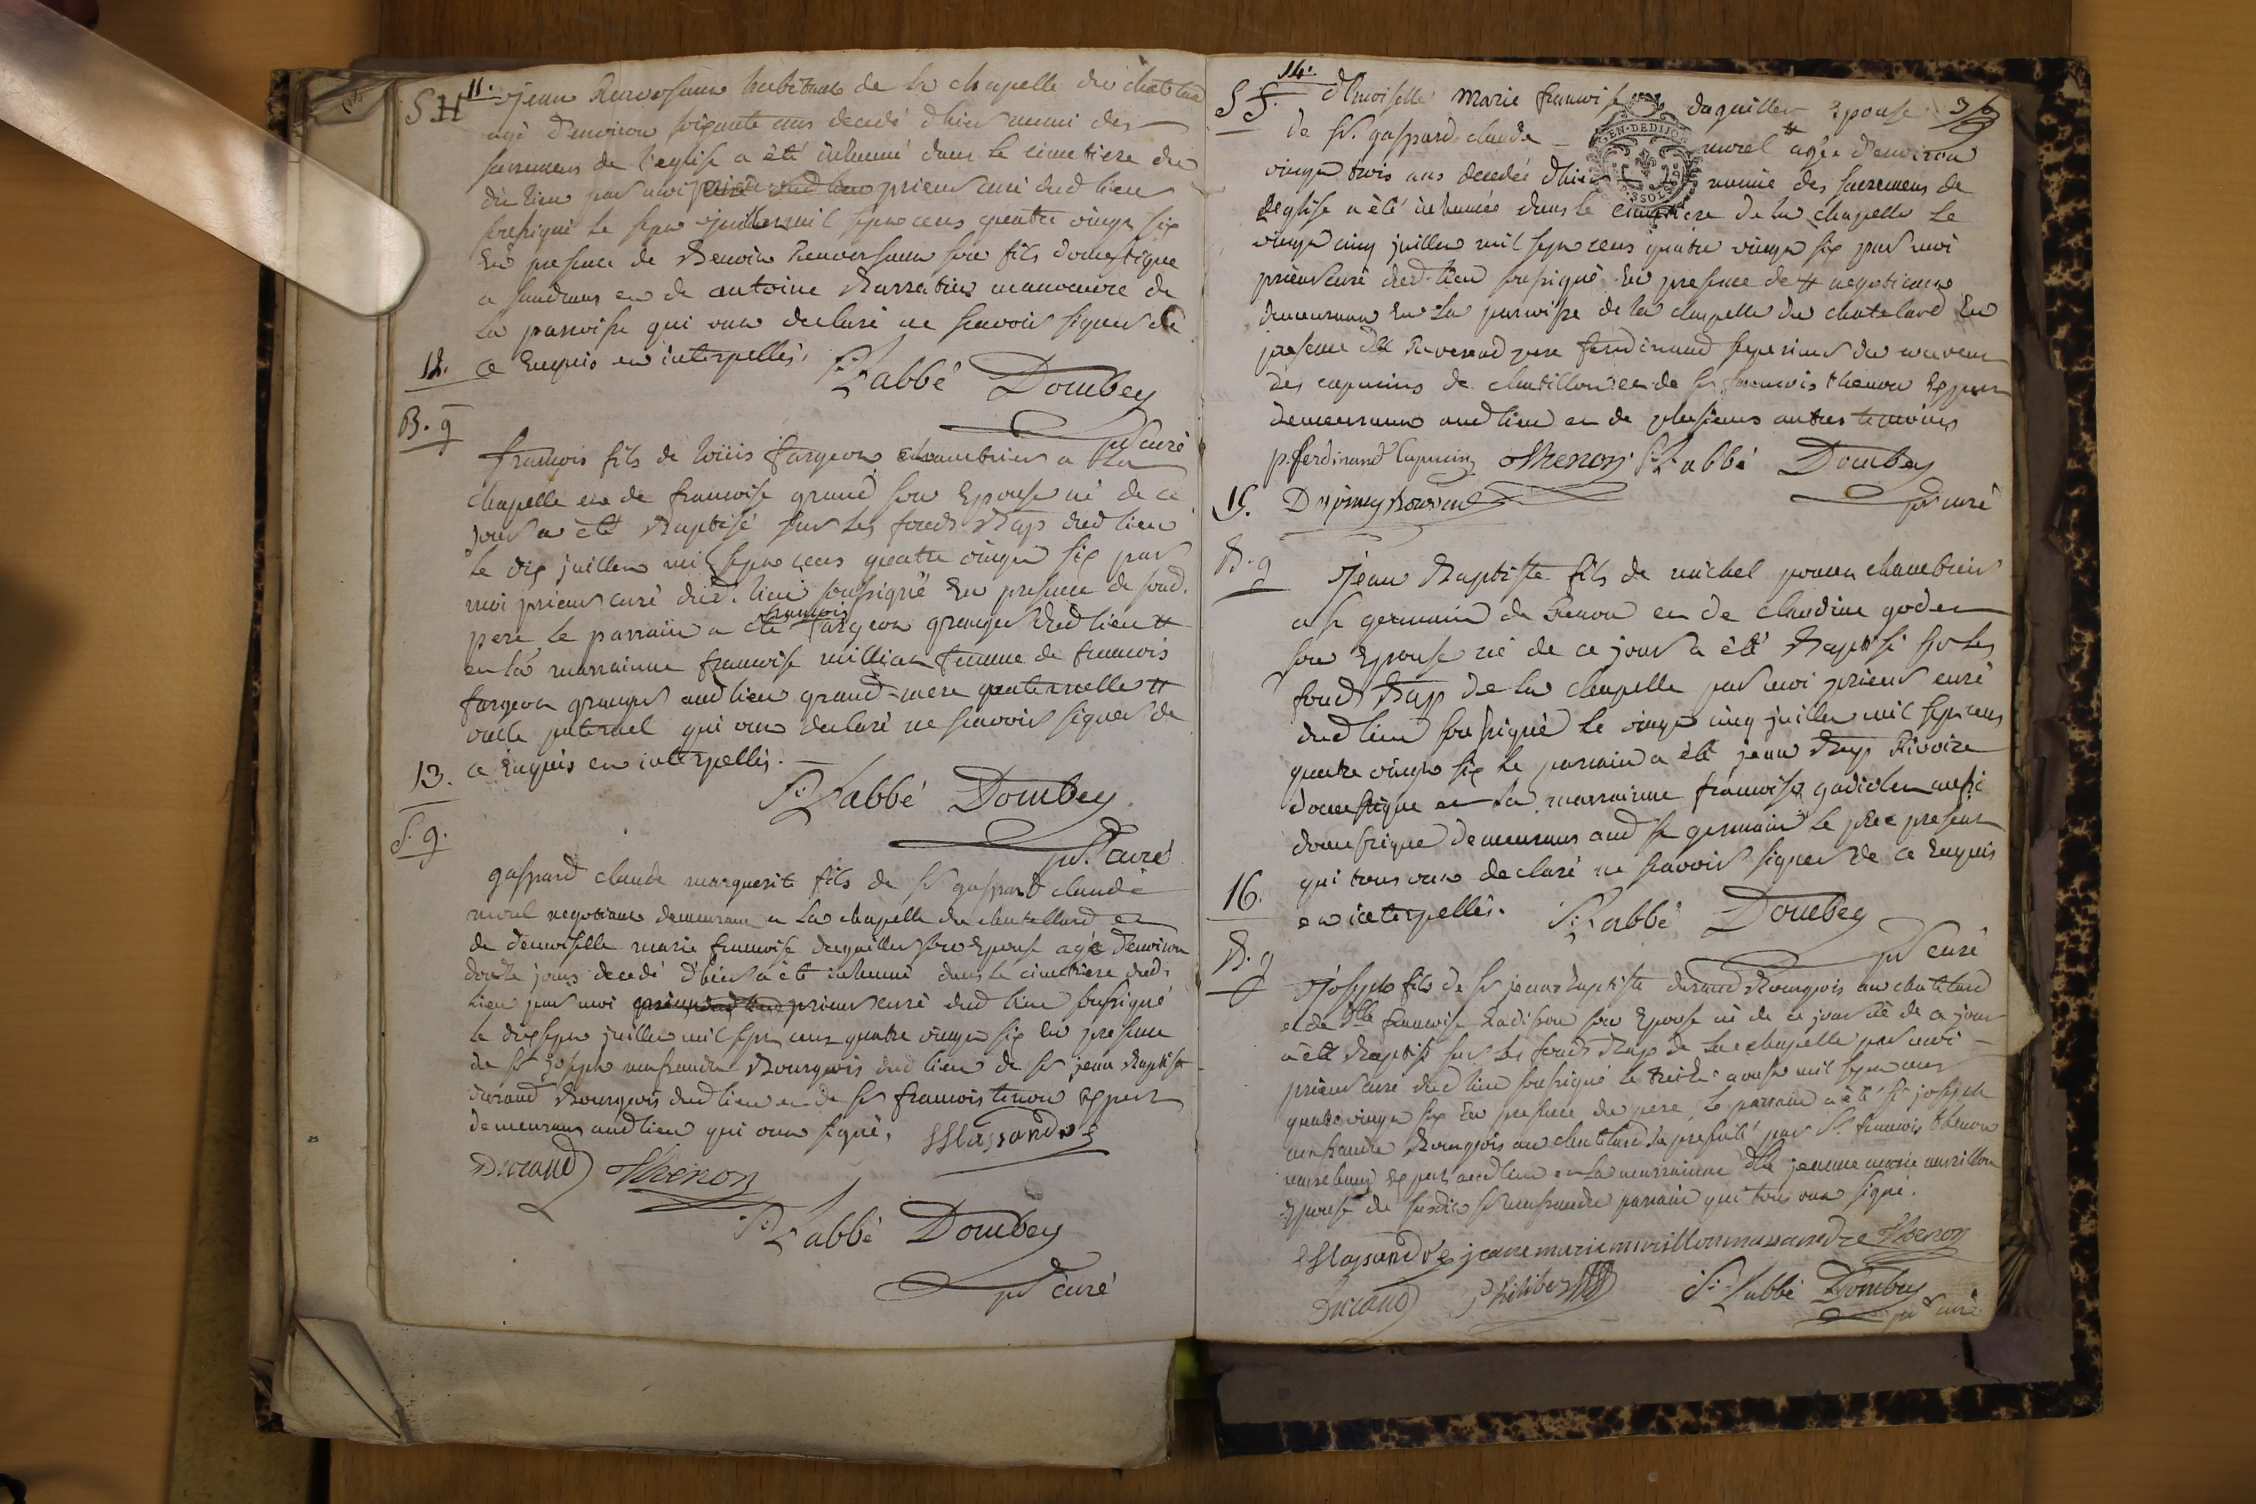 11.
S H
jean habitant de la chapelle du chatelard
agé d'environ soixante ans decedé d'hier muni des
sacremens de l'eglise a été inhumé dans le cimetiere du
dit lieu par moi prieur curé dud lieu
soussigné le sept juillet mil sept cens quatre vingt six
En presence de Benoit son fils domestique
a sandrans et de antoine manoeuvre de
la parroisse qui ont declaré ne scavoir signer de
ce Enquis et interpellés.
P. Labbé Dombey
pr curé
12.
B. g
francois fils de loüis fargeon chambrier a La
chapelle et de francoise grand son Epouse né de ce
jour a été Baptisé sur les fonds Bap dud lieu
le dix juillet mil sept cens quatre vingt six par
moi prieur curé dud. lieu soussigné En presence de sond.
pere le parrain a été francois fargeon granger dud lieu #
et la marrainne francoise millian femme de francois
fargeon granger aud lieu grand-mere paternelle #
oncle paternel qui ont declaré ne scavoir signer de
ce Enquis et interpellés.
P. Labbé Dombey
pr. curé
13.
S. g.
gaspard claude marguerite fils de sr gaspard claude
morel negotiant demeurant a La chapelle du chatellard et
de demoiselle marie francoise daquillet son Epouse agé d'environ
douze jours decedé d'hier a été inhumé dans le cimetiere dud.
lieu par moi prieur curé dud lieu soussigné
le dix sept juillet mil sept cens quatre vingt six En presence
de sr joseph Bourgeois dud lieu de sr jean Baptiste
durand Bourgeois dud lieu et de sr francois tenon Expert
demeurant aud lieu qui ont signé.
Durand Thenon
P. Labbé Dombey
pr curé
14.
S f.
d'moiselle Marie francoise daquillet Epouse
de sr. gaspard claude morel # agée d'environ
vingt trois ans decedée d'hier munie des sacremens de
l'eglise a été inhumée dans le cimetiere de la chapelle le
vingt cinq juillet mil sept cens quatre vingt six par moi
prieur curé dud. lieu soussigné En presence de # negotiant
demeurant En La parroisse de la chapelle du chatelard En
presence du Reverend pere ferdinand superieur du couvent
des capucins de chatillon et de sr francois thenon Expert
demeurant aud lieu et de plusieurs autres temoins
p. ferdinand Capucin Thenon P. Labbé Dombey
pr curé
15.
B. g
jean Baptiste fils de michel poncet chambrier
a st germain de Renon et de claudine godet
son Epouse né de ce jour a été Baptisé sur les
fonds Bap de la chapelle par moi prieur curé
dud lieu soussigné le vingt cinq juillet mil sept cens
quatre vingt six le parrain a été jean Bap Rivoire
domestique et la marrainne francoise gadiolet aussi
domestique demeurans aud st germain le pere present
qui tous ont declaré ne scavoir signer de ce Enquis
et interpellés.
P. Labbé Dombey
pr curé
16.
B. g
joseph fils de sr jean baptiste durand Bourgeois au chatelard
et de dlle francoise Radisson son Epouse né de ce jour né de ce jour
a été Baptisé sur les fonds Bap de La chapelle par moi
prieur curé dud lieu soussigné le treize aoust mil sept cens
quatre vingt six En presence du pere, le parrain a été sr joseph
Bourgeois au chatelard representé par Sr. francois thenon
Expert aud lieu et la marrainne dlle jeanne marie murillon
Epouse de parrain qui tous ont signé.
jeane marie Thenon
Durand P. Labbé Dombey
pr curé